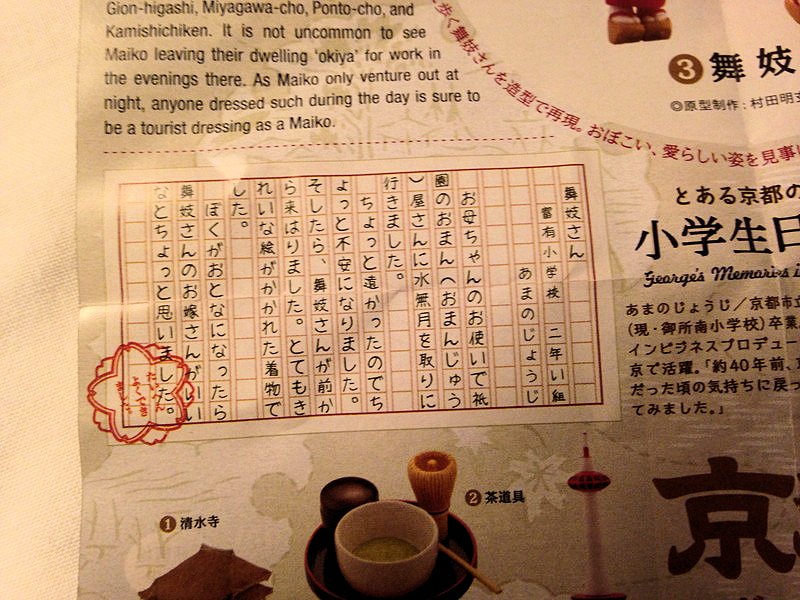 Gion-higashi, Miyagawa-cho, Ponto-cho, and
Kamishichiken. It is not uncommon to see
Maiko leaving their dwelling 'okiya' for work in
the evenings there. As Maiko only venture out at
night, anyone dressed such during the day is sure to
be a tourist dressing as a Maiko.
歩く舞妓さんを造型で再現。おぼこい、愛らしい姿を見事に
3 舞妓
◎原型制作：村田明玄
舞妓さん
富有小学校 二年い組
あまのじょうじ
お母ちゃんのお使いで祇
園のおまん（おまんじゅう
）屋さんに水無月を取りに
行きました。
ちょっと遠かったのでち
ょっと不安になりました。
そしたら、舞妓さんが前か
ら来はりました。とてもき
れいな絵がかかれた着物で
した。
ぼくがおとなになったら
舞妓さんのお嫁さんがいい
なとちょっと思いました。
たいへん
よくでき
ました
とある京都の
小学生日
George's Memories i
あまのじょうじ／京都市立
(現・御所南小学校)卒業
インビジネスプロデュー
京で活躍。「約40年前、
だった頃の気持ちに戻っ
てみました。」
1 清水寺
2 茶道具
京